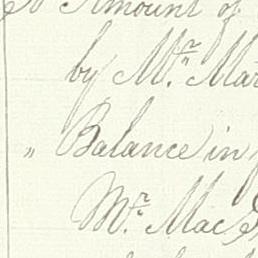 Amount of
by Mr.
" Balance in
Mr. Mac